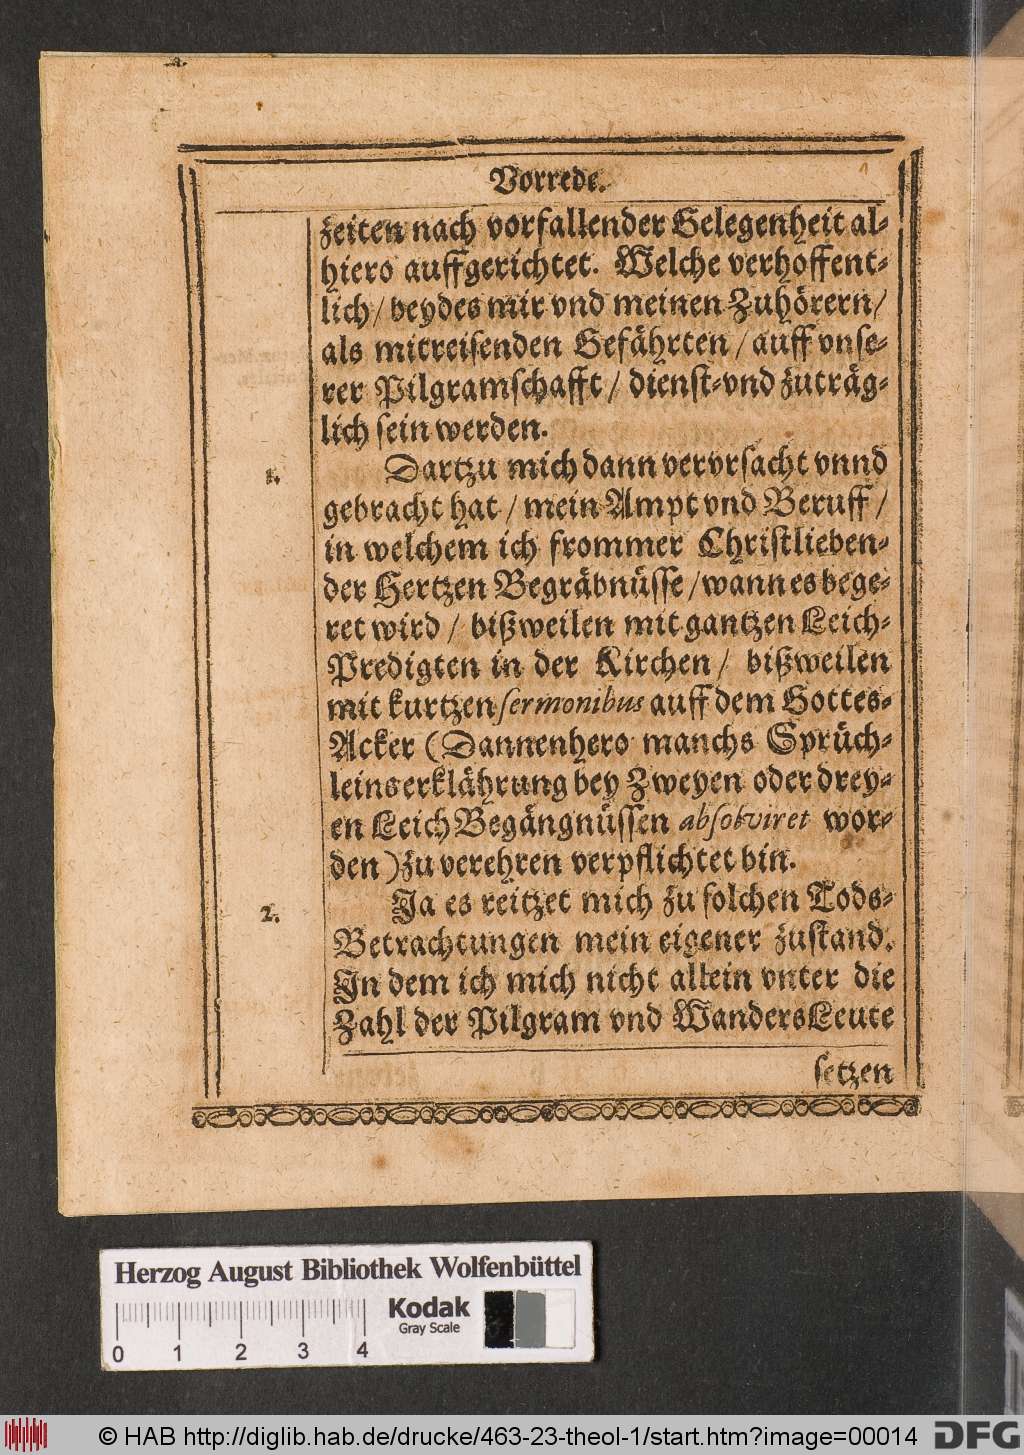 Vorrede.
zeiten nach vorfallender Gelegenheit al-
hiero auffgerichtet. Welche verhoffent-
lich / beydes mir vnd meinen Zuhörern /
als mitreisenden Gefährten / auff vnse-
rer Pilgramschafft / dienst-vnd zuträg-
lich sein werden.
1. Dartzu mich dann vervrsacht vnnd
gebracht hat / mein Ampt vnd Beruff /
in welchem ich frommer Christlieben-
der Hertzen Begräbnüsse / wann es bege-
ret wird / bißweilen mit gantzen Leich-
Predigten in der Kirchen / bißweilen
mit kurtzen sermonibus auff dem Gottes-
Acker (Dannenhero manchs Sprüch-
leins erklährung bey Zweyen oder drey-
en Leich Begängnüssen absolviret wor-
den) zu verehren verpflichtet bin.
2. Ja es reitzet mich zu solchen Tods-
Betrachtungen mein eigener zustand.
In dem ich mich nicht allein vnter die
Zahl der Pilgram vnd WandersLeute
setzen
Herzog August Bibliothek Wolfenbüttel
Kodak
Gray Scale
0 1 2 3 4
© HAB http://diglib.hab.de/drucke/463-23-theol-1/start.htm?image=00014
DFG